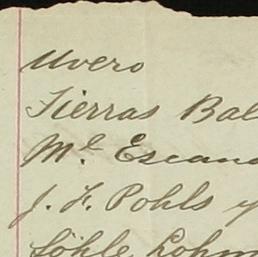 Uvero
Tierras Bal
M.e Escand
J. F. Pohls y
Söhle Lohm